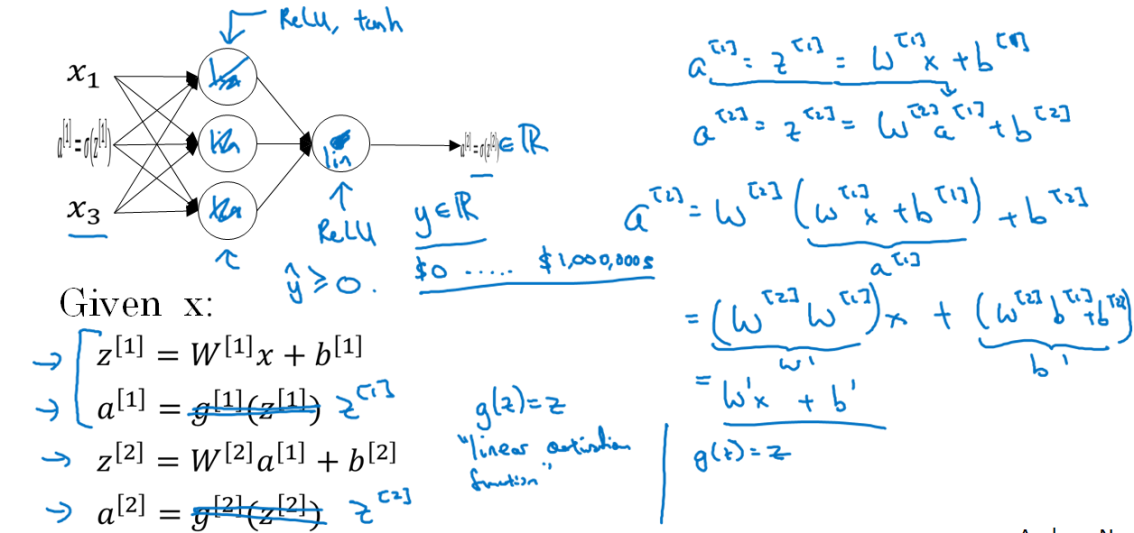 ReLU, tanh
x₁
a^[1] = σ(z^[1])
x₃
lin
a^[2] = σ(z^[2]) ∈ ℝ
ReLU
ŷ ≥ 0.
y ∈ ℝ
$0 ..... $1,000,000s
Given x:
z^[1] = W^[1]x + b^[1]
a^[1] = g^[1](z^[1]) z^[1]
z^[2] = W^[2]a^[1] + b^[2]
a^[2] = g^[2](z^[2]) z^[2]
g(z) = z
"linear activation
function"
a^[1] = z^[1] = W^[1]x + b^[1]
a^[2] = z^[2] = W^[2]a^[1] + b^[2]
a^[2] = W^[2](W^[1]x + b^[1]) + b^[2]
a^[1]
= (W^[2]W^[1])x + (W^[2]b^[1] + b^[2])
W' b'
= W'x + b'
g(z) = z